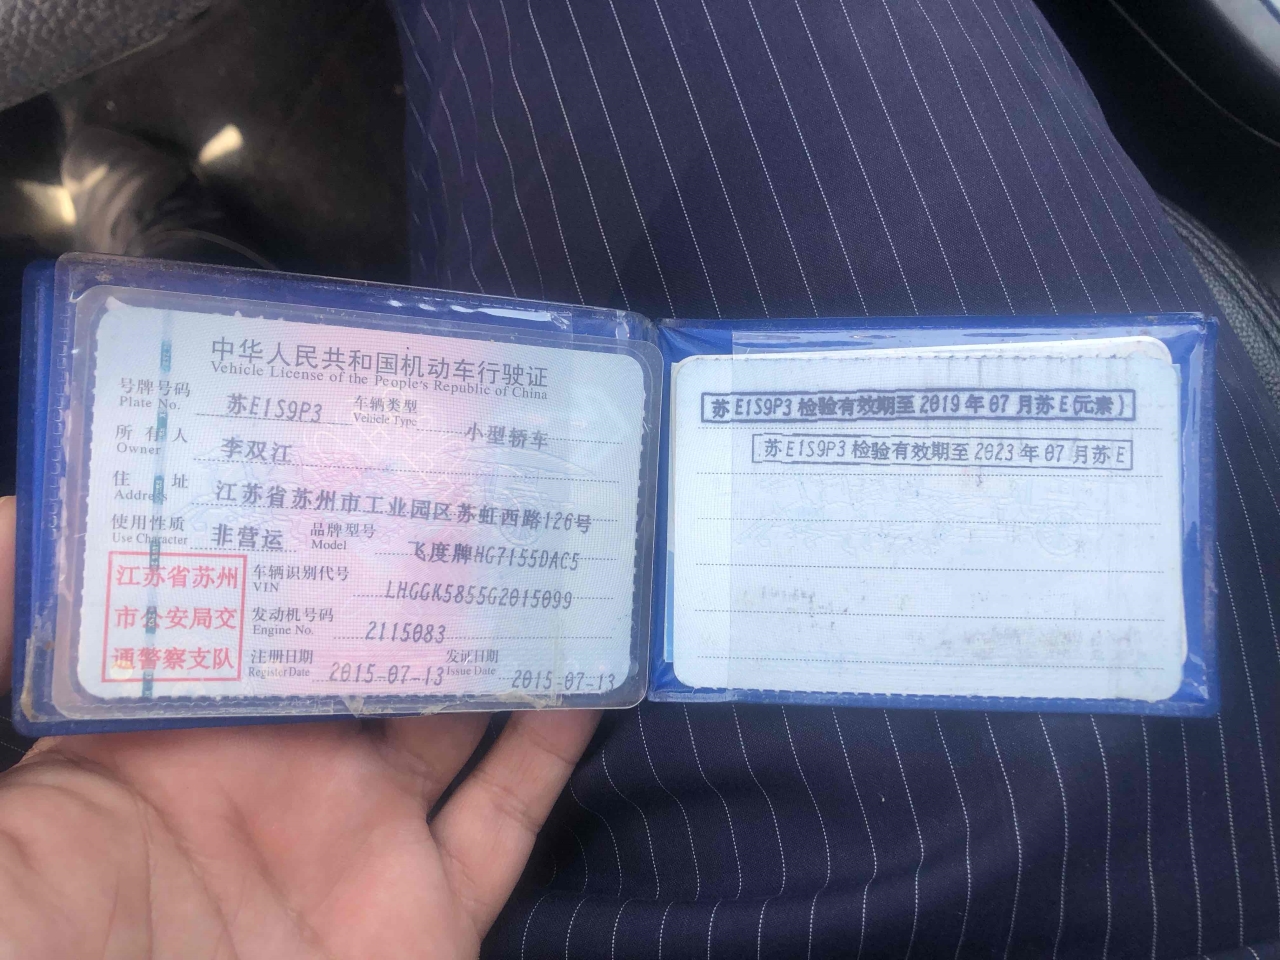 中华人民共和国机动车行驶证
Vehicle License of the People's Republic of China
号牌号码 苏E1S9P3 车辆类型 小型轿车
Plate No. Vehicle Type
所有人 李双江
Owner
住址 江苏省苏州市工业园区苏虹西路126号
Address
使用性质 非营运 品牌型号 飞度牌HG7155DAC5
Use Character Model
江苏省苏州
市公安局交
通警察支队
车辆识别代号 LHGGK5855G2015099
VIN
发动机号码 2115083
Engine No.
注册日期 2015-07-13 发证日期 2015-07-13
Register Date Issue Date
苏E1S9P3检验有效期至2019年07月苏E(元素)
苏E1S9P3检验有效期至2023年07月苏E